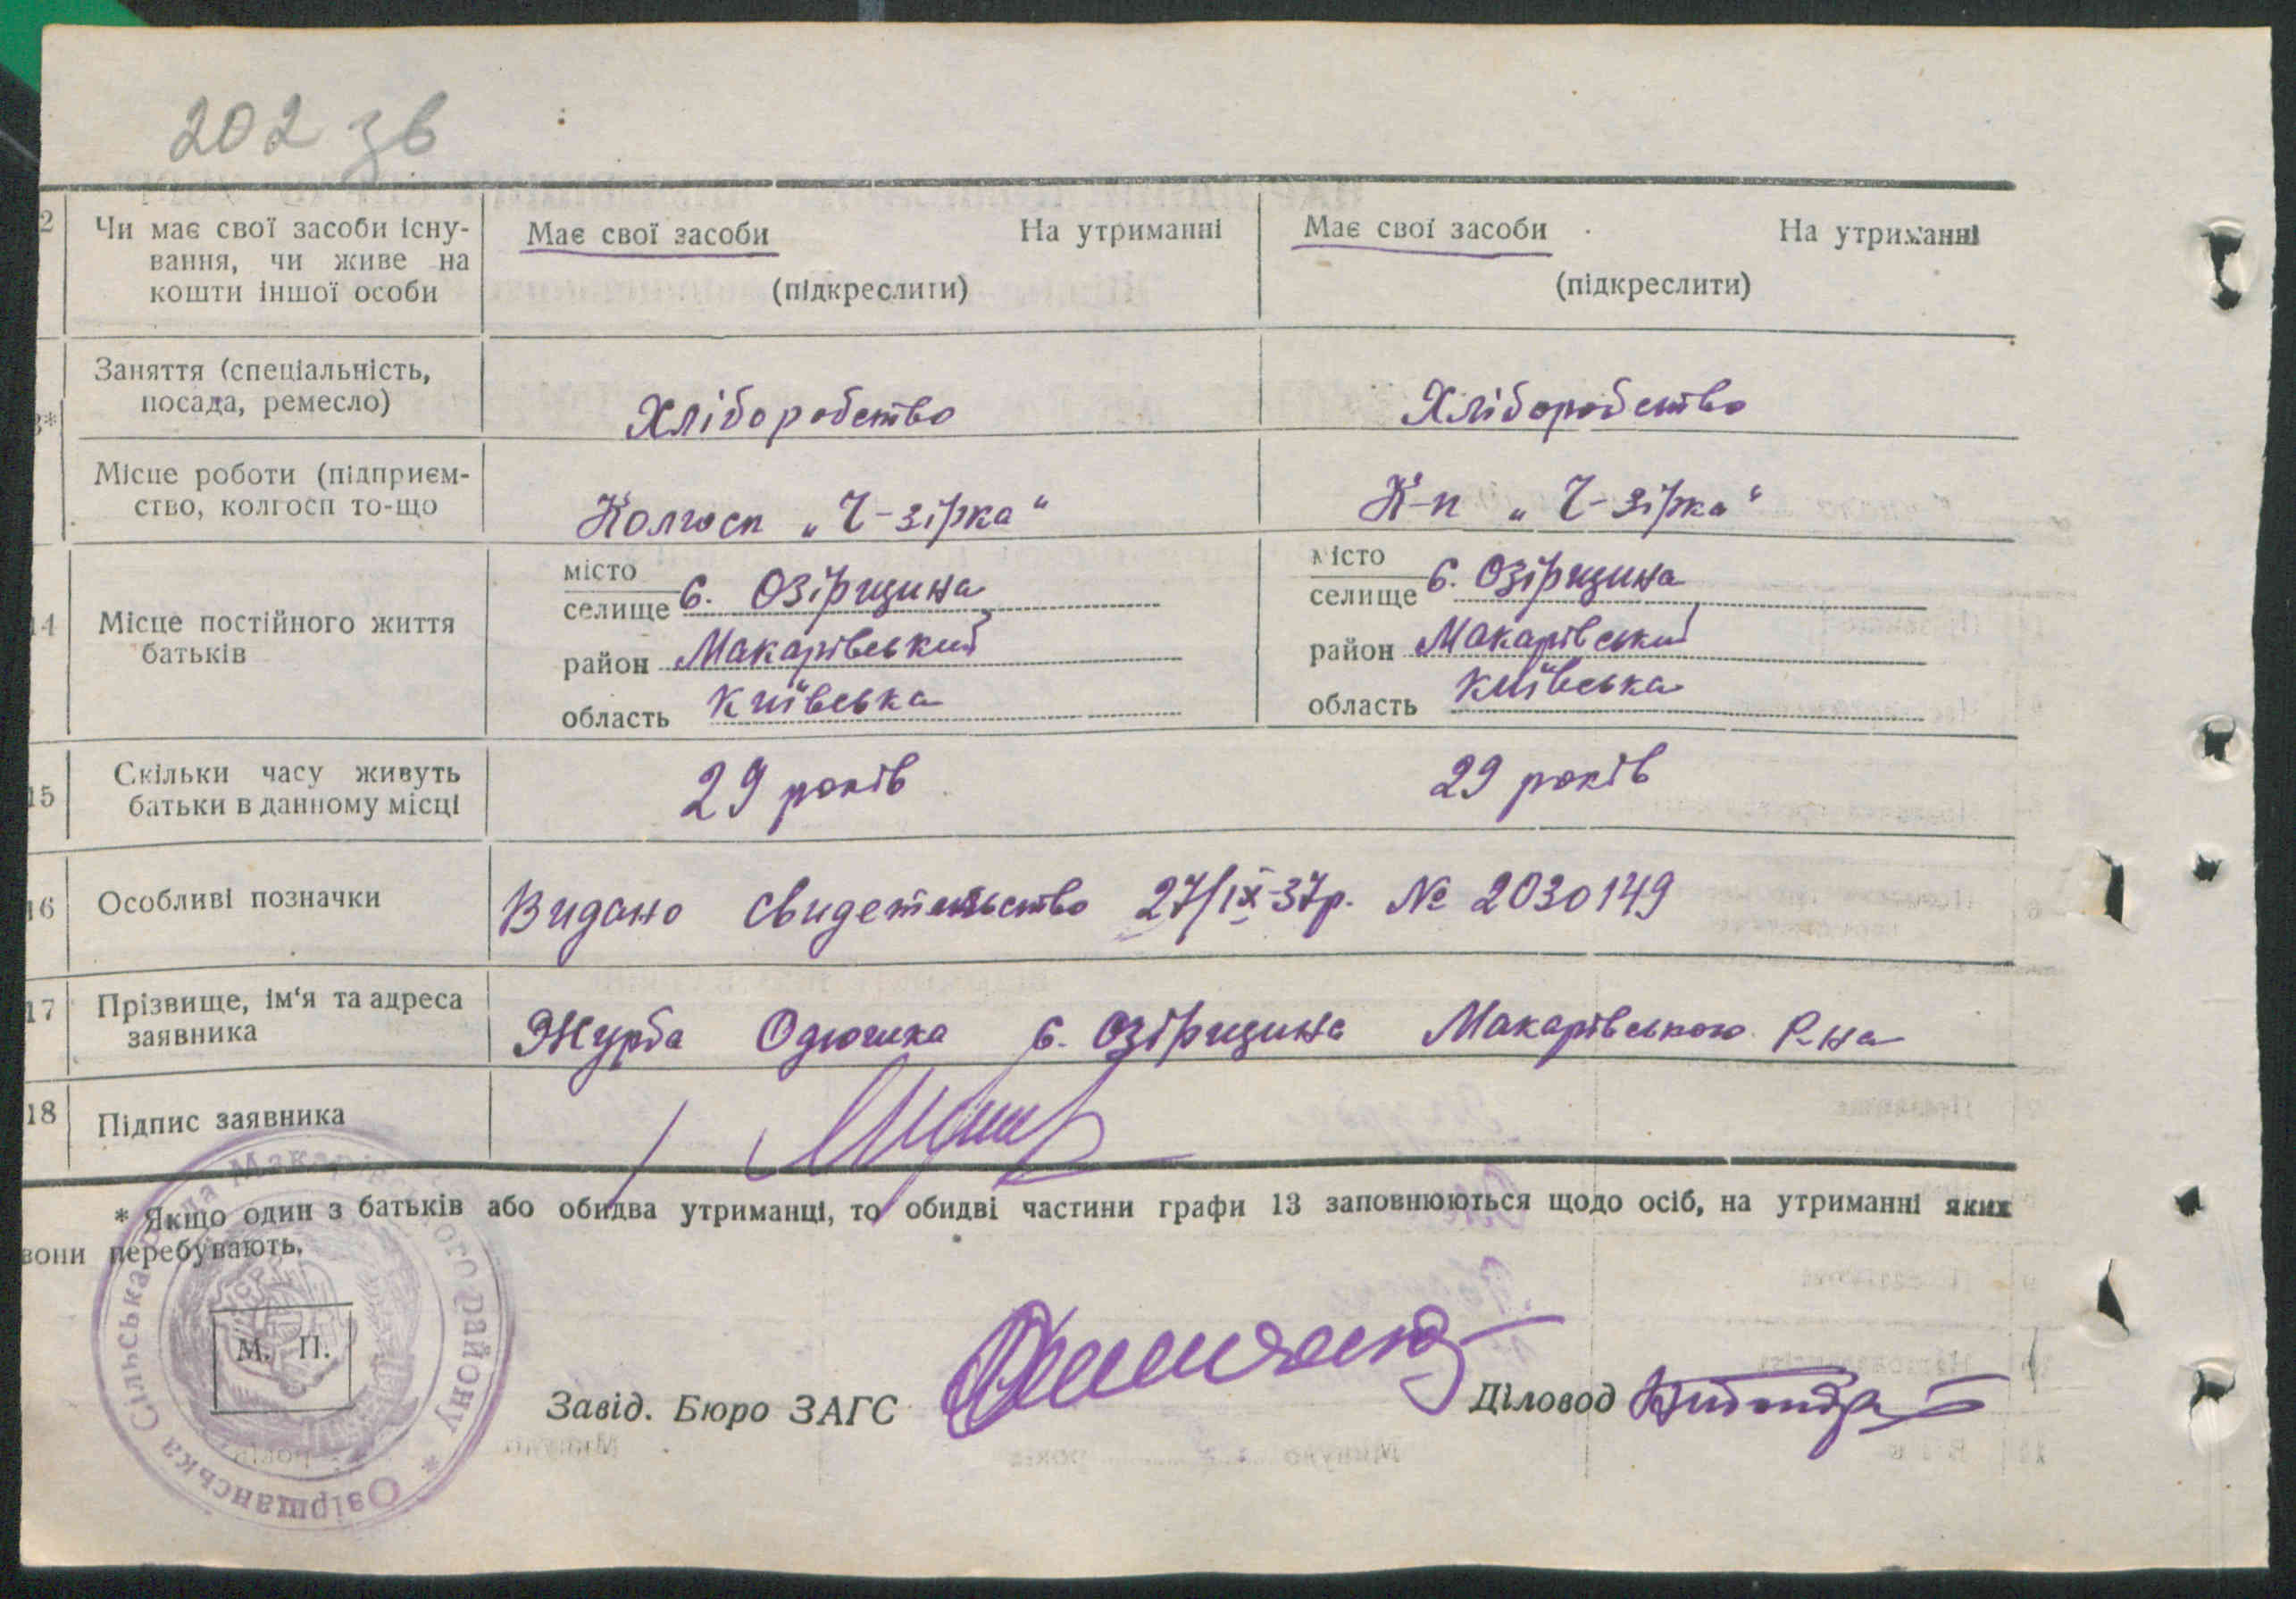 202 зв
2 Чи має свої засоби існу- Має свої засоби На утриманні Має свої засоби На утриманні
вання, чи живе на
кошти іншої особи (підкреслити) (підкреслити)
Заняття (спеціальність,
посада, ремесло) Хліборобство Хліборобство
3*
Місце роботи (підприєм-
ство, колгосп то-що Колгосп „Ч-зірка“ К-п „Ч-зірка“
14 Місце постійного життя
батьків
місто
селище с. Озірщина
район Макарівський
область Київська
місто
селище с. Озірщина
район Макарівський
область Київська
15 Скільки часу живуть
батьки в данному місці 29 років 29 років
16 Особливі позначки Видано свидетельство 27/IX-37р. № 2030149
17 Прізвище, ім‘я та адреса
заявника Журба Одюшка с. Озірщина Макарівського Р-на
18 Підпис заявника
* Якщо один з батьків або обидва утриманці, то обидві частини графи 13 заповнюються щодо осіб, на утриманні яких
вони перебувають.
Озірщанська Сільська Рада Макарівського району *
М. П.
Завід. Бюро ЗАГС Діловод